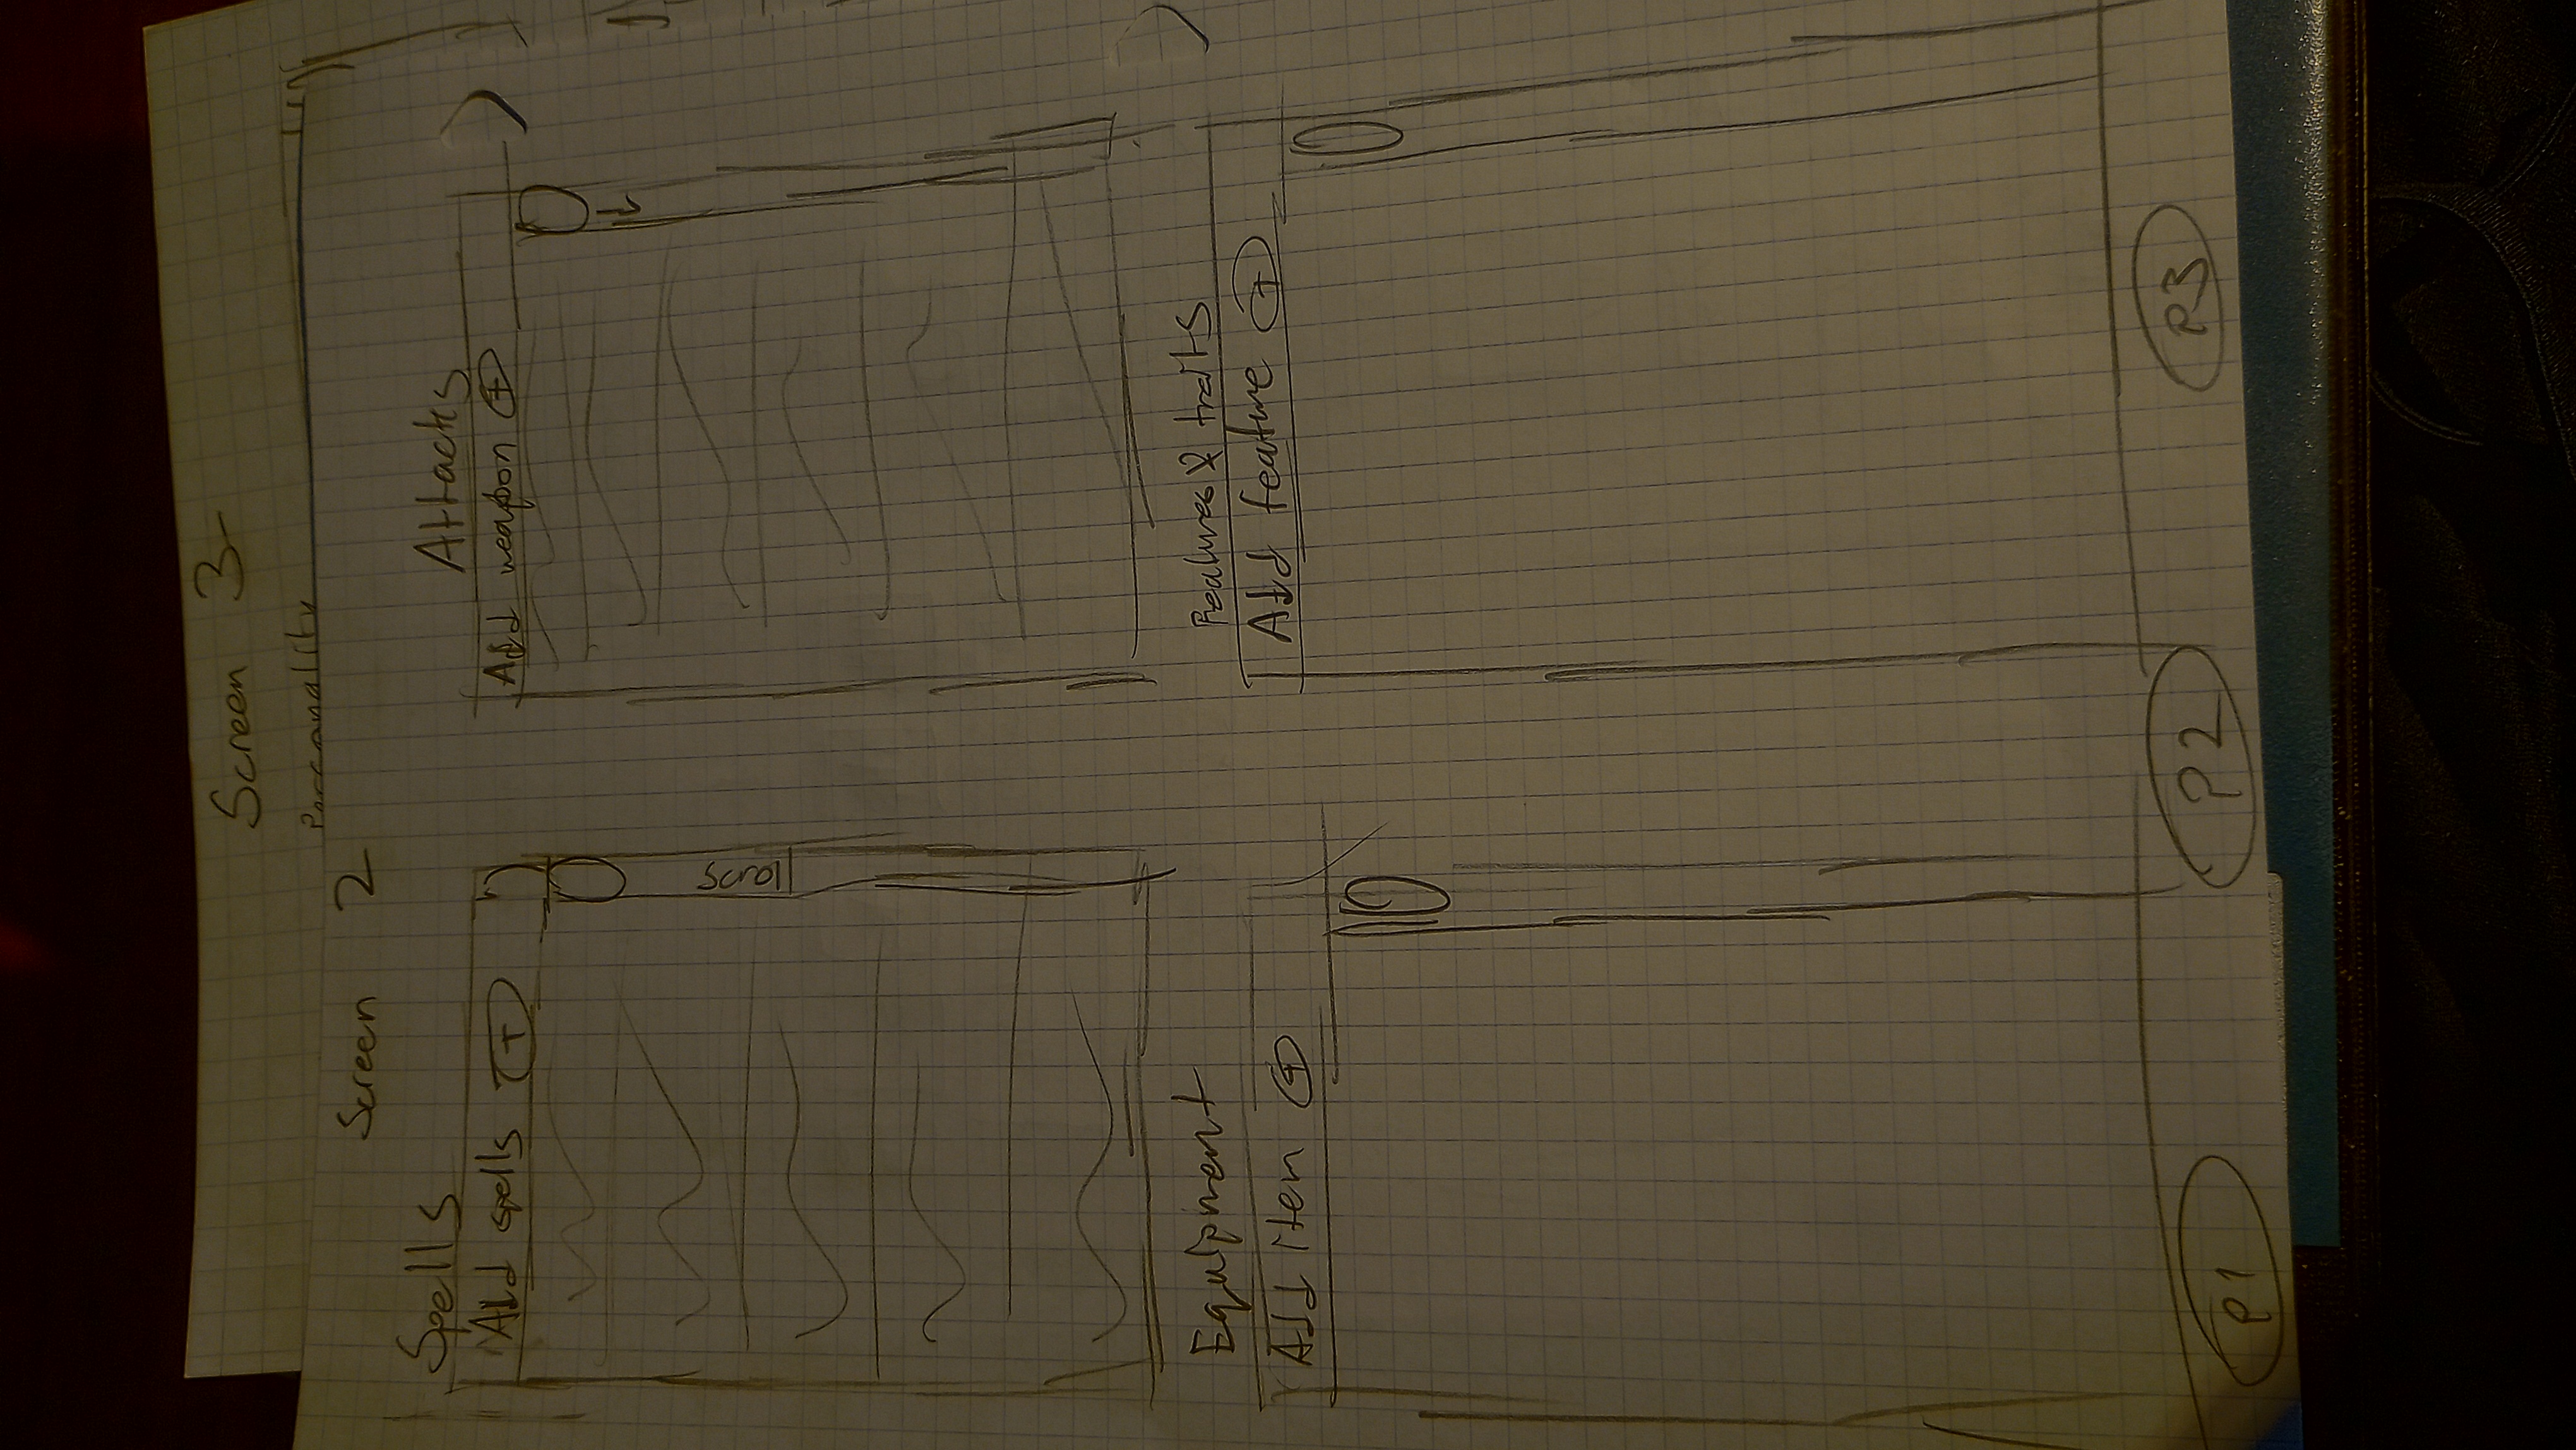 Screen 3
Personality
Screen 2
Spells
Add spells +
Scrol
Attacks
Add weapon +
Equipment
Add item +
Features & traits
Add feature +
P1
P2
P3